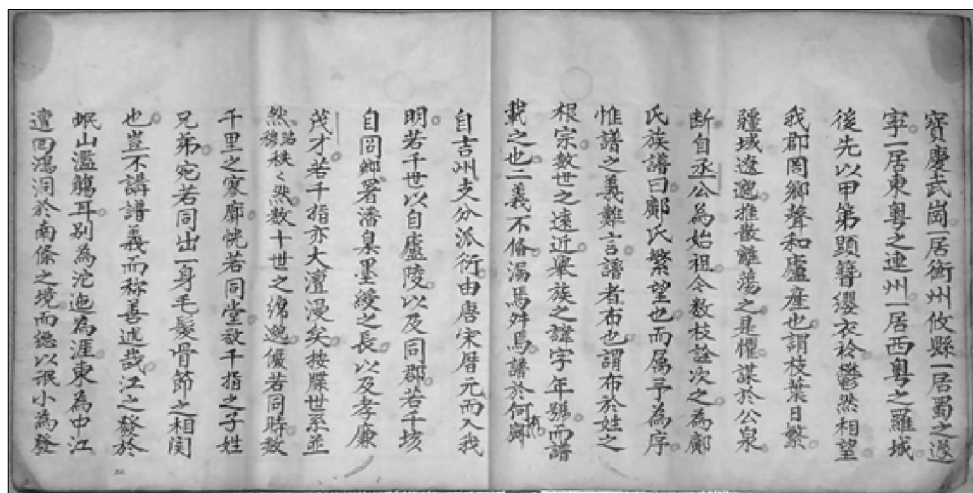 寶慶武崗一居衡州攸縣一居蜀之遂
寧一居東粵之連州一居西粵之羅城
後先以甲第顯簪纓衣衿鬱然相望
我郡罔鄉聲和廬產也謂枝葉日繁
疆域遼邈推散離蕩之是懼謀於公泉
断自丞公為始祖令数枝詮次之為鄺
氏族譜曰鄺氏繁望也而属予為序
惟譜之義難言譜者布也謂布於姓之
根宗数世之遠近舉族之諱字年號而譜
載之也二義不脩漏焉舛焉譜於何有鄺
自吉州支分派衍由唐宋暦元而入我
明若千世以自廬陵以及同郡若千垓
自罔鄉署潘臬墨綬之長以及孝廉
茂才若千指亦大澶漫矣按牒世系並
然昭穆秩々然数十世之綿邈優若同時数
千里之寥廓恍若同堂数千指之子姓
兄弟宛若同出一身毛髮骨節之相関
也豈不講譜義而称善述哉江之發於
岷山濫觴耳别為沱迤為涯東為中江
澶回澒洞於南條之境而總以岷小為發